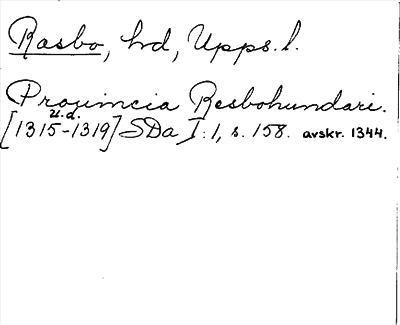 Rasbo, hd, Upps. l.
Prouincia Resbohundari.
u.d.
[1315-1319] SDa I:1, s. 158. avskr. 1344.